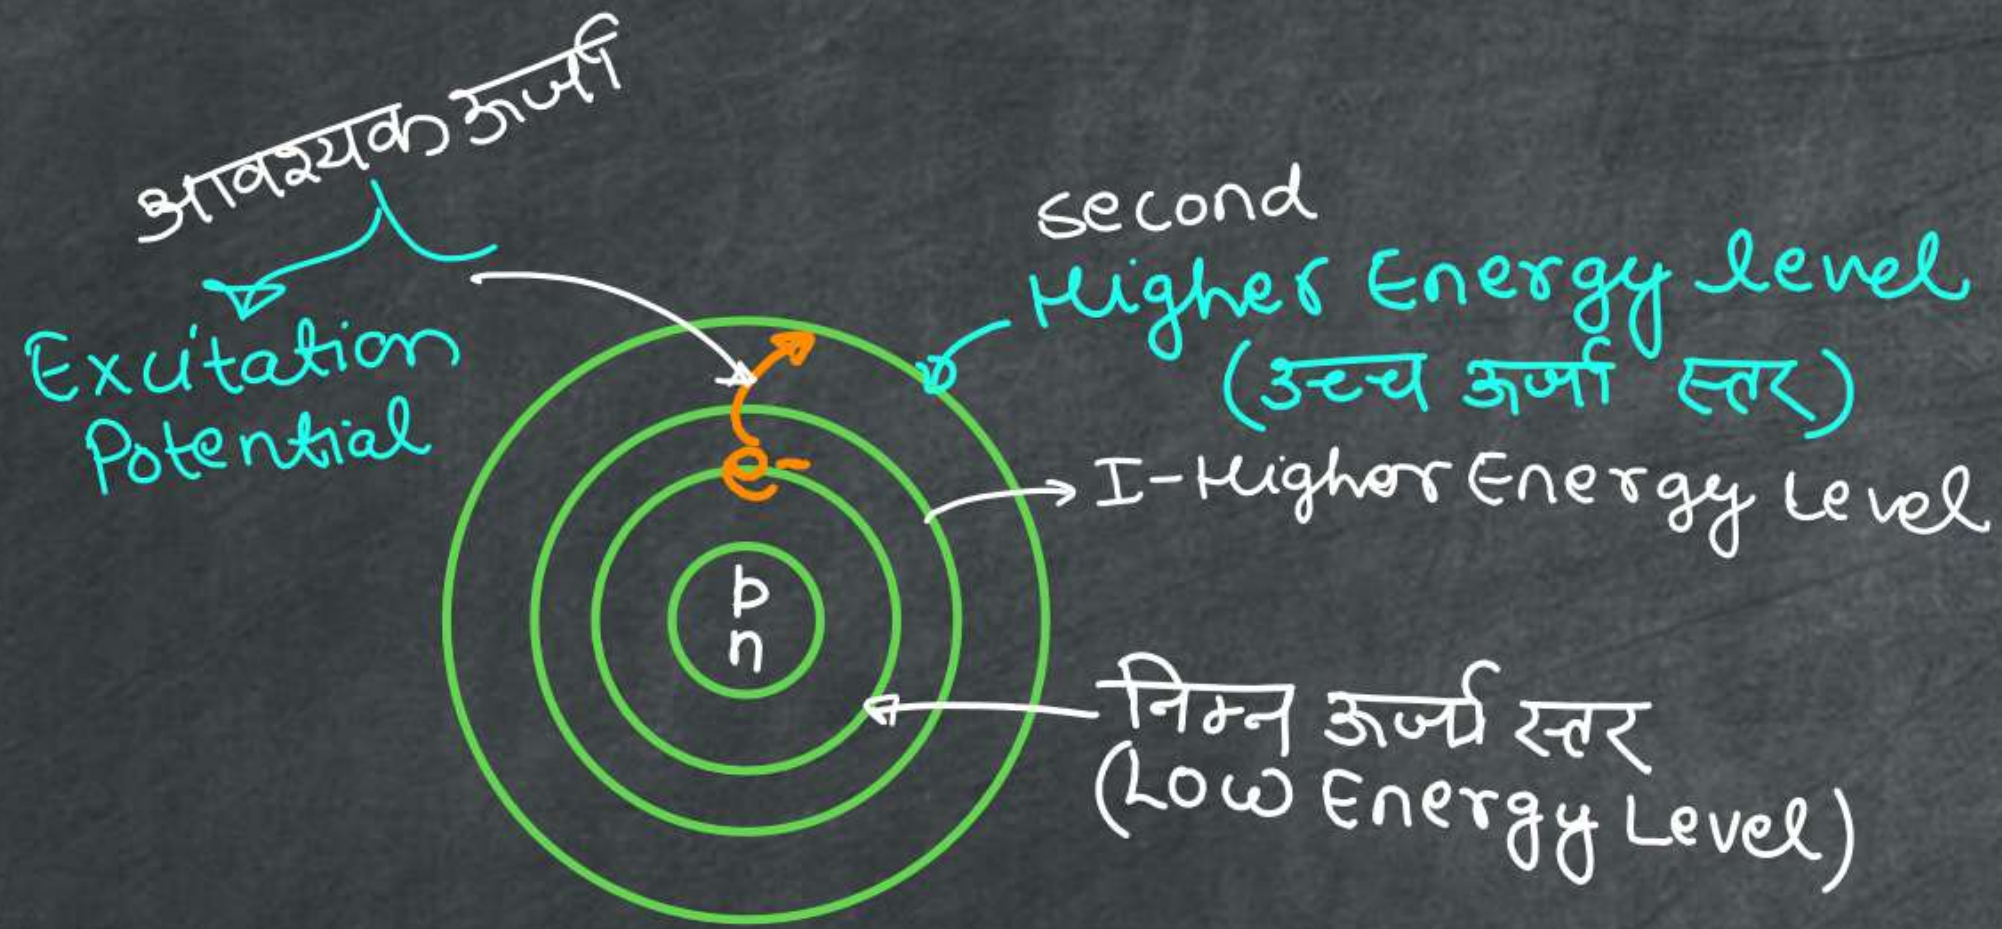 आवश्यक ऊर्जा
Excitation
Potential
second
Higher Energy level
(उच्च ऊर्जा स्तर)
I-Higher Energy Level
e-
p
n
निम्न ऊर्जा स्तर
(Low Energy Level)